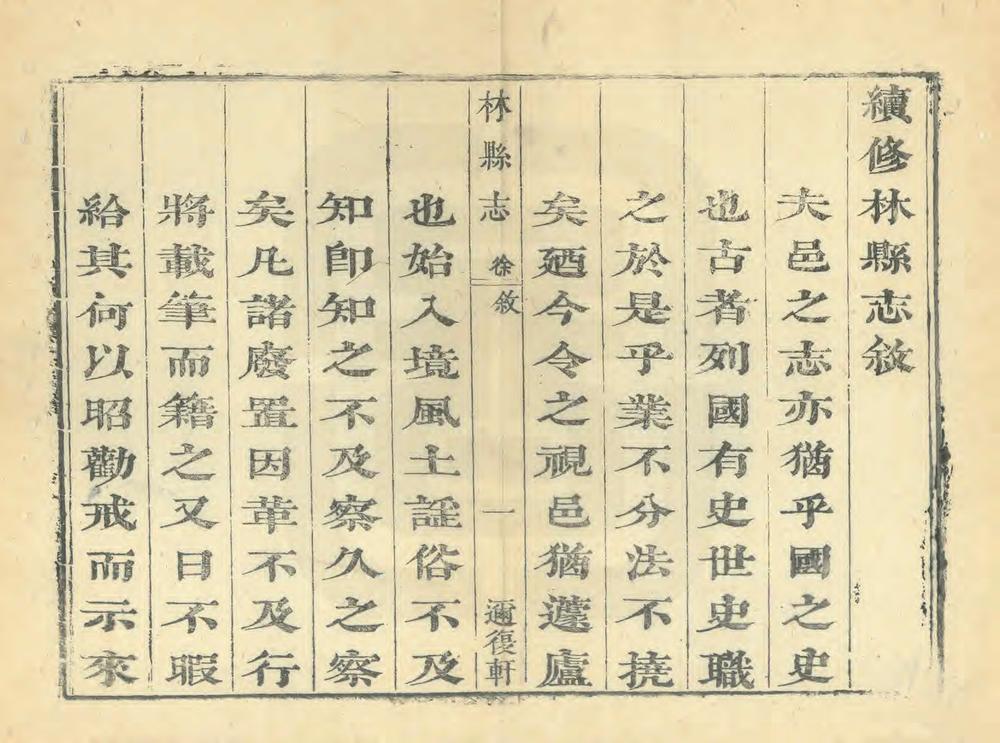 續修林縣志敘
夫邑之志亦猶乎國之史
也古者列國有史世史職
之於是乎業不分法不撓
矣廼今令之視邑猶蘧廬
林縣志 徐敘 一 邇復軒
也始入境風土謡俗不及
知卽知之不及察久之察
矣凡諸廢置因革不及行
將載筆而籍之又日不暇
給其何以昭勸戒而示來